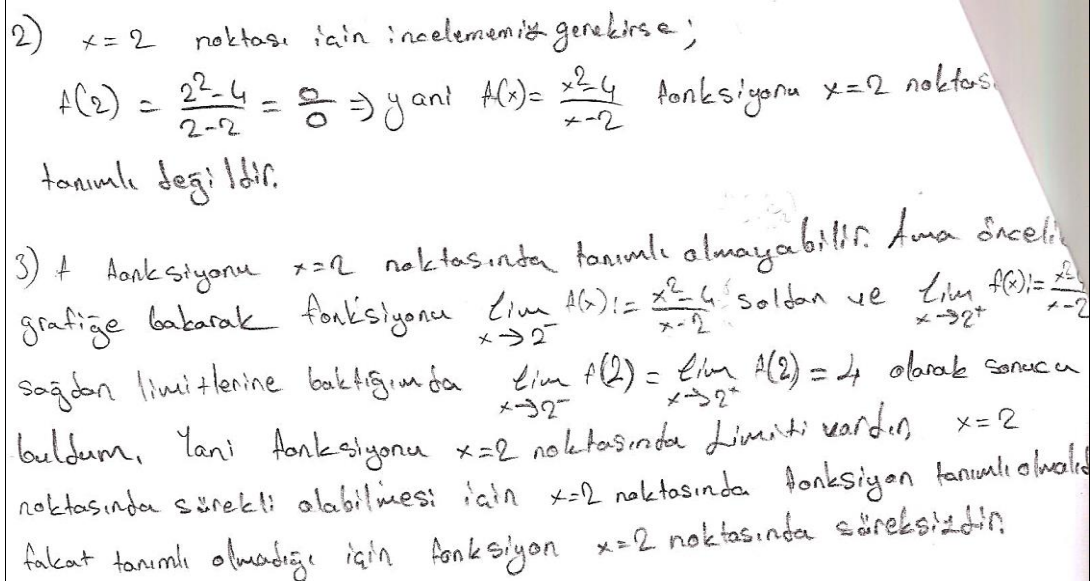 2) x=2 noktası için incelememiz gerekirse;
f(2) = (2²-4)/(2-2) = 0/0 ⇒ yani f(x) = (x²-4)/(x-2) fonksiyonu x=2 noktas
tanımlı değildir.
3) f fonksiyonu x=2 noktasında tanımlı olmayabilir. Ama önceli
grafiğe bakarak fonksiyonu lim x→2⁻ f(x):= (x²-4)/(x-2) soldan ve lim x→2⁺ f(x):= x²/(x-2
sağdan limitlerine baktığımda lim x→2⁻ f(2) = lim x→2⁺ f(2) = 4 olarak sonucu
buldum. Yani fonksiyonu x=2 noktasında limiti vardır, x=2
noktasında sürekli olabilmesi için x=2 noktasında fonksiyon tanımlı olmalıd
fakat tanımlı olmadığı için fonksiyon x=2 noktasında süreksizdir.